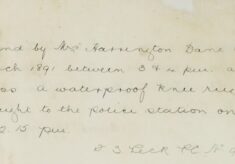 nd by Mrs Harrington Dane
ch 1891 between 3 & 4 pm. a
ss a waterproof knee rug
ught to the police station on
2.15 pm.
J S Peck PC N